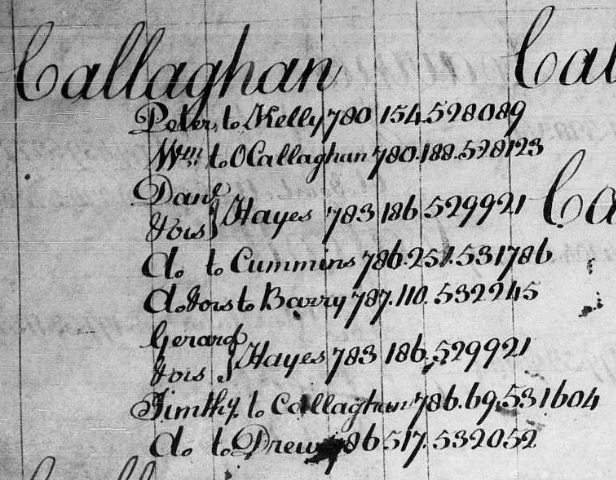 Callaghan
Peter to Kelly 780 154. 528089
Wm to OCallaghan 780. 188. 528123
Danl
& ors } Hayes 783 186. 529921
do. to Cummins 786. 251. 531786
do. & ors to Barry 787. 110. 532245
Gerard
& ors } Hayes 783 186. 529921
Timthy to Callaghan 786. 69. 531604
do. to Drew 517. 532052